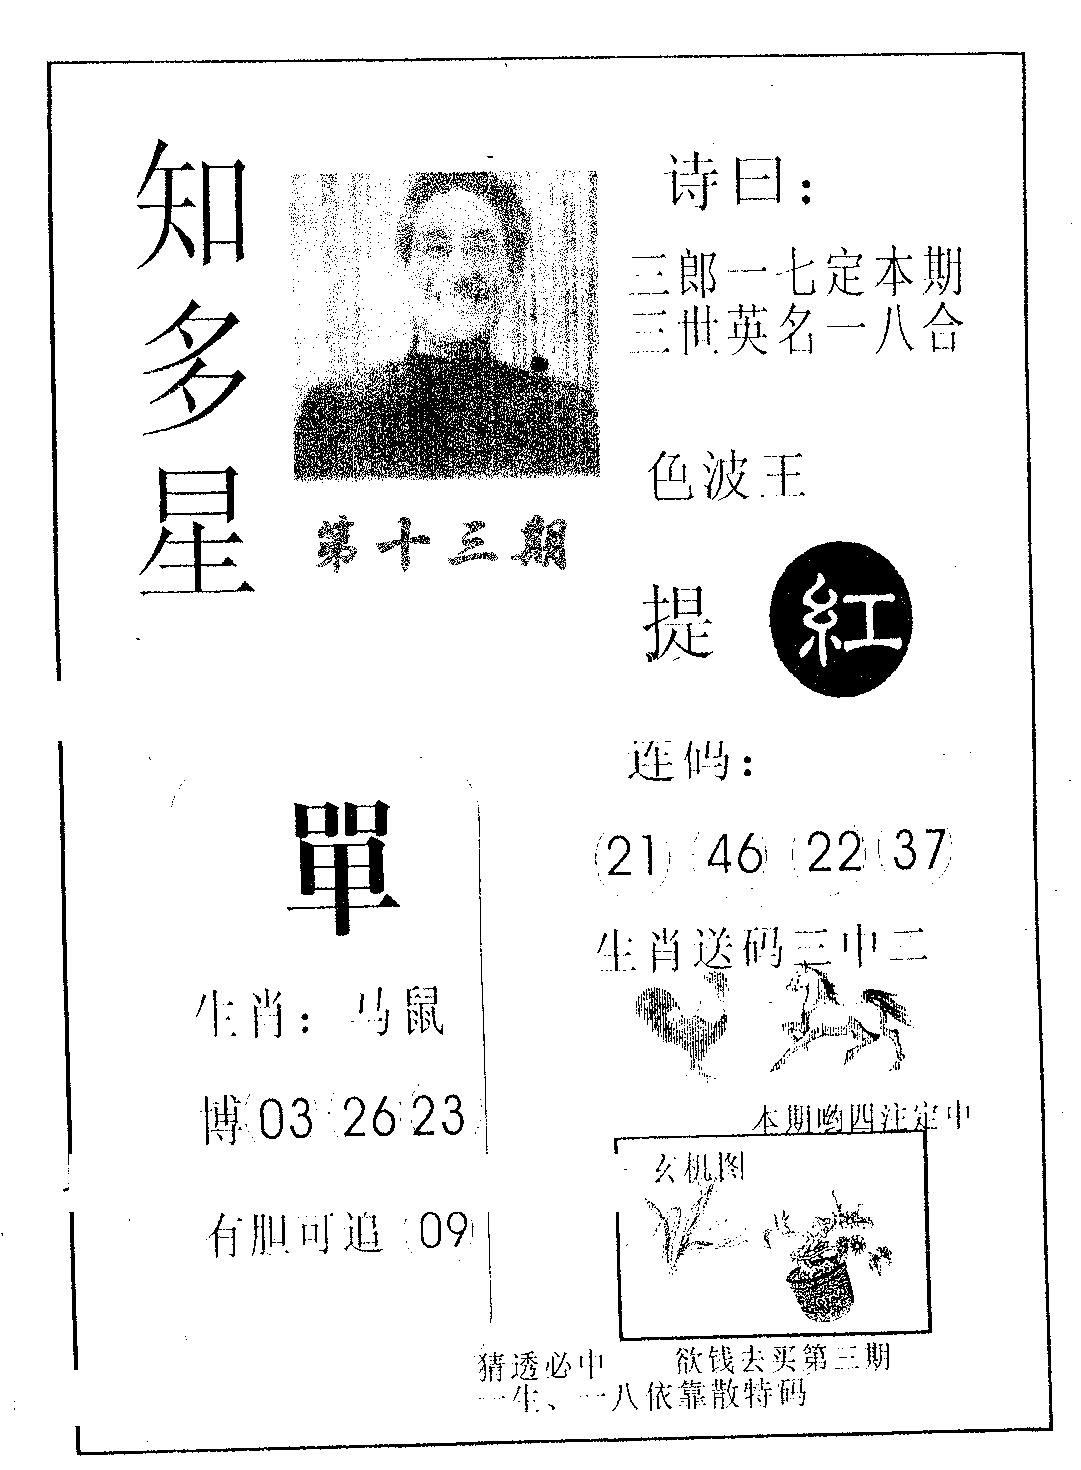 知多星
第十三期
诗曰：
三郎一七定本期
三世英名一八合
色波王
提 紅
單
生肖：马鼠
博 03 26 23
有胆可追 09
连码：
21 46 22 37
生肖送码三中二
本期哟四注定中
玄机图
猜透必中 欲钱去买第三期
一生、一八依靠散特码